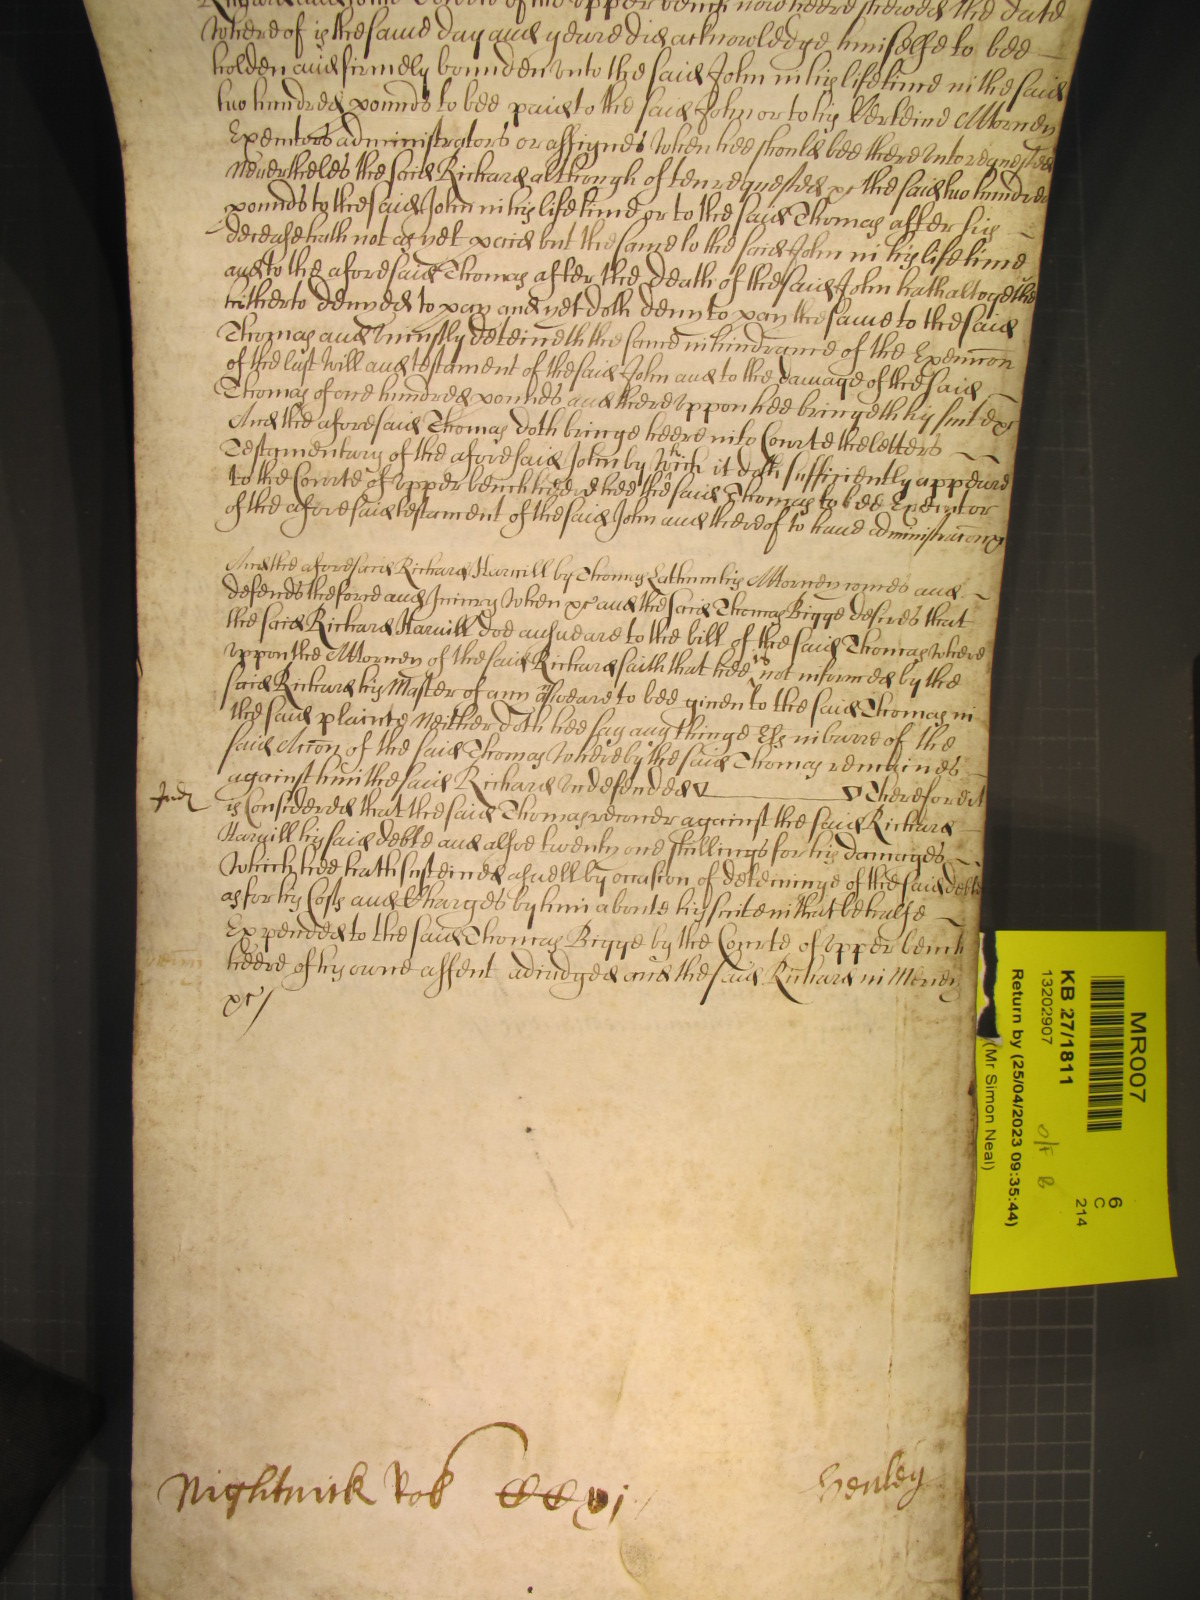 England and some Courte of the upper bench now heere shewed the date
whereof is the same day and yeare did acknowledge himselfe to bee
holden and firmely bounden unto the said John in his life time in the said
two hundred pounds to bee paid to the said John or to his Certeine Attorney
Executors administrators or assignes when hee should bee there unto requested
Neverthelesse the said Richard although often requested &c the said two hundred
pounds to the said John in his life time or to the said Thomas after his
decease hath not as yet paid but the same to the said John in his life time
and to the aforesaid Thomas after the death of the said John hath altogether
hitherto denyed to pay and yet doth deny to pay the same to the said
Thomas and uniustly deteineth the same in hindrance of the Execucon
of the last will and testament of the said John and to the damage of the said
Thomas of one hundred pounds and there uppon hee bringeth his suit &c
And the aforesaid Thomas doth bringe heere into Courte the letters
Testamentary of the aforesaid John by wch it doth sufficiently appeare
to the Courte of upper bench heere hee the said Thomas to bee Executor
of the aforesaid testament of the said John and thereof to have administracon &c
And the aforesaid Richard Harvill by Thomas Lathum his Attorney comes and
defends the force and Iniury when &c and the said Thomas Bigge desires that
the said Richard Harvill doe answeare to the bill of the said Thomas where
uppon the Attorney of the said Richard saith that hee is not informed by the
said Richard his Master of any answeare to bee given to the said Thomas in
the said plainte Neither doth hee say any thinge Els in barre of the
said Accon of the said Thomas whereby the said Thomas remaines
against him the said Richard undefended Therefore it
Iud
is Considered that the said Thomas recover against the said Richard
Harvill his said debte and alsoe twenty one shillings for his damages
which hee hath susteined aswell by occasion of deteininge of the said debte
as for his Costs and Charges by him aboute his suite in that behalfe
Expended to the said Thomas Bigge by the Courte of upper bench
heere of his owne assent adiudged and the said Richard in Mercy
&c
Nightwick Rob CCxvi
Henley
MR007
KB 27/1811
13202907
Return by (25/04/2023 09:35:44)
(Mr Simon Neal)
6
C
214